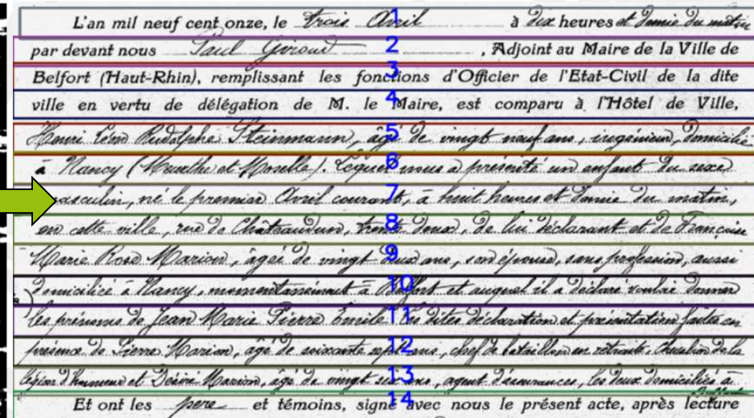 L'an mil neuf cent onze, le trois Avril à dix heures et demie du matin
par devant nous Paul Giroud, Adjoint au Maire de la Ville de
Belfort (Haut-Rhin), remplissant les fonctions d'Officier de l'Etat-Civil de la dite
ville en vertu de délégation de M. le Maire, est comparu à l'Hôtel de Ville,
Henri Léon Rudolphe Steinmann, âgé de vingt neuf ans, ingénieur, domicilié
à Nancy (Meurthe et Moselle). Lequel nous a présenté un enfant du sexe
masculin, né le premier Avril courant, à huit heures et demie du matin,
en cette ville, rue de Châteaudun, trente deux, de lui déclarant et de Françoise
Marie Rose Marion, âgée de vingt deux ans, son épouse, sans profession, aussi
domiciliée à Nancy, momentanément à Belfort et auquel il a déclaré vouloir donner
les prénoms de Jean Marie Pierre Emile. Les dites déclaration et présentation faites en
présence de Pierre Marion, âgé de soixante sept ans, chef de bataillon en retraite, Chevalier de la
Légion d'honneur et Désiré Marion, âgé de vingt ans, agent d'assurances, les deux domiciliés à
Et ont les père et témoins, signé avec nous le présent acte, après lecture
1
2
3
4
5
6
7
8
9
10
11
12
13
14